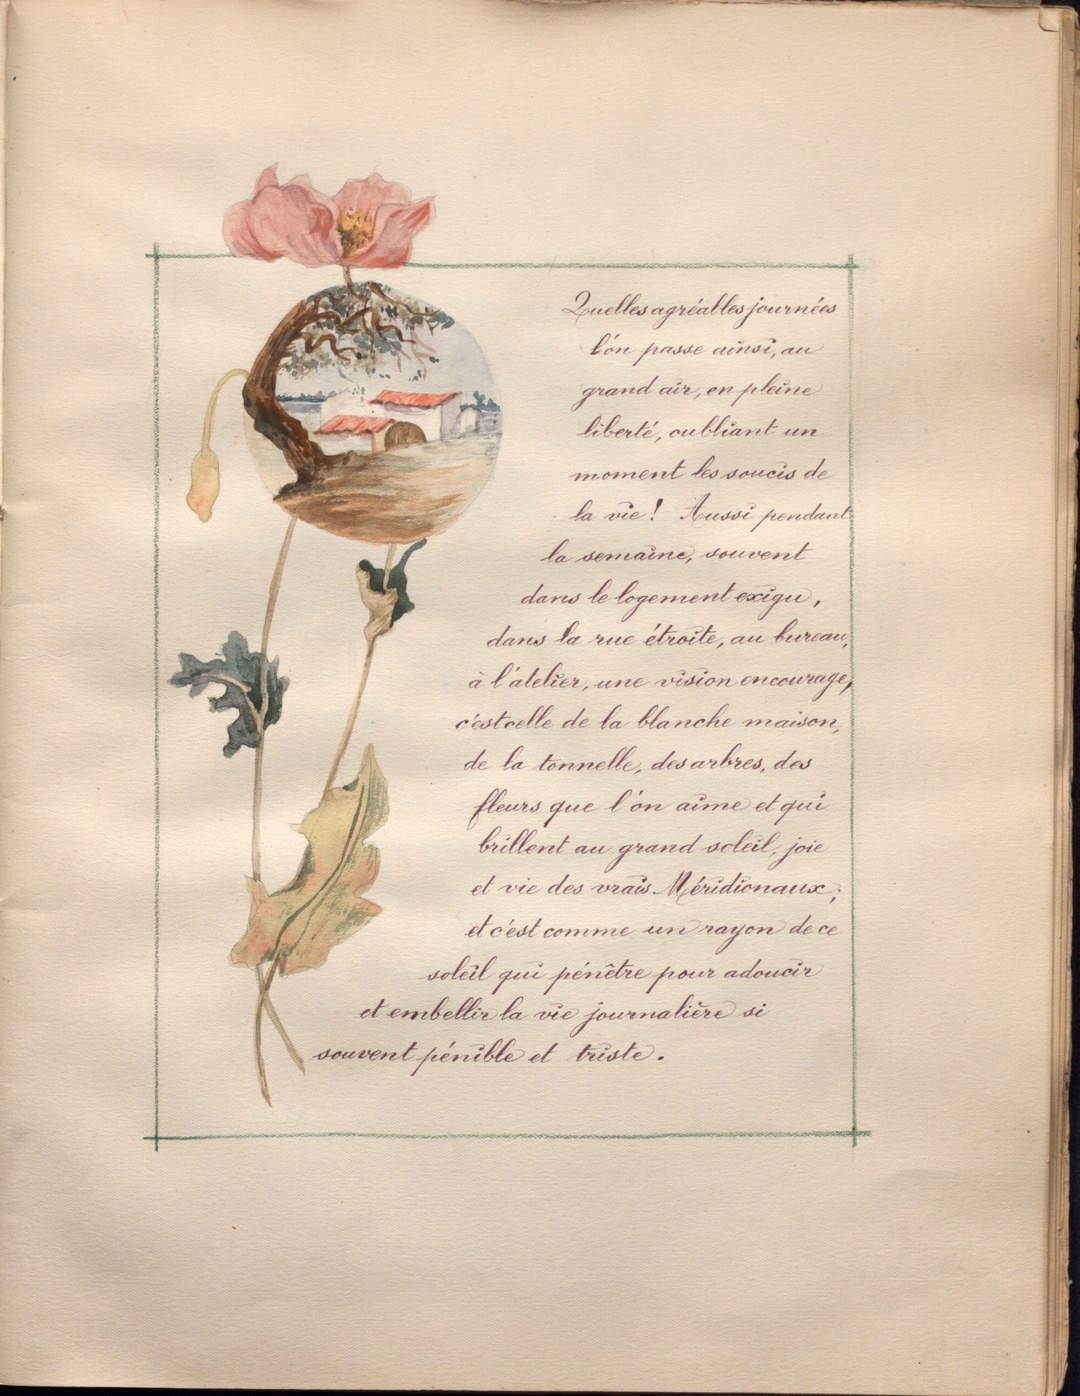 Quelles agréables journées
l'on passe ainsi, au
grand air, en pleine
liberté, oubliant un
moment les soucis de
la vie ! Aussi pendant
la semaine, souvent
dans le logement exigu,
dans la rue étroite, au bureau,
à l'atelier, une vision encourage,
c'est celle de la blanche maison,
de la tonnelle, des arbres, des
fleurs que l'on aime et qui
brillent au grand soleil, joie
et vie des vrais Méridionaux ;
et c'est comme un rayon de ce
soleil qui pénètre pour adoucir
et embellir la vie journalière si
souvent pénible et triste.